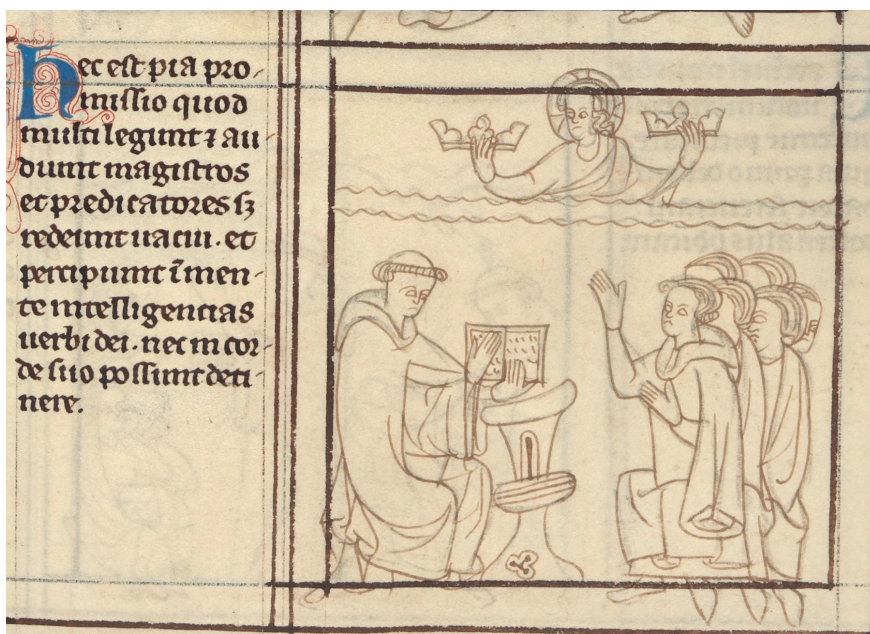 Hec est pia pro-
missio quod
multi legunt ⁊ au-
diunt magistros
et predicatores sꝫ
redeunt uacui. et
percipiunt ī men-
te intelligencias
uerbi dei. nec in cor-
de suo possunt deti-
nere.